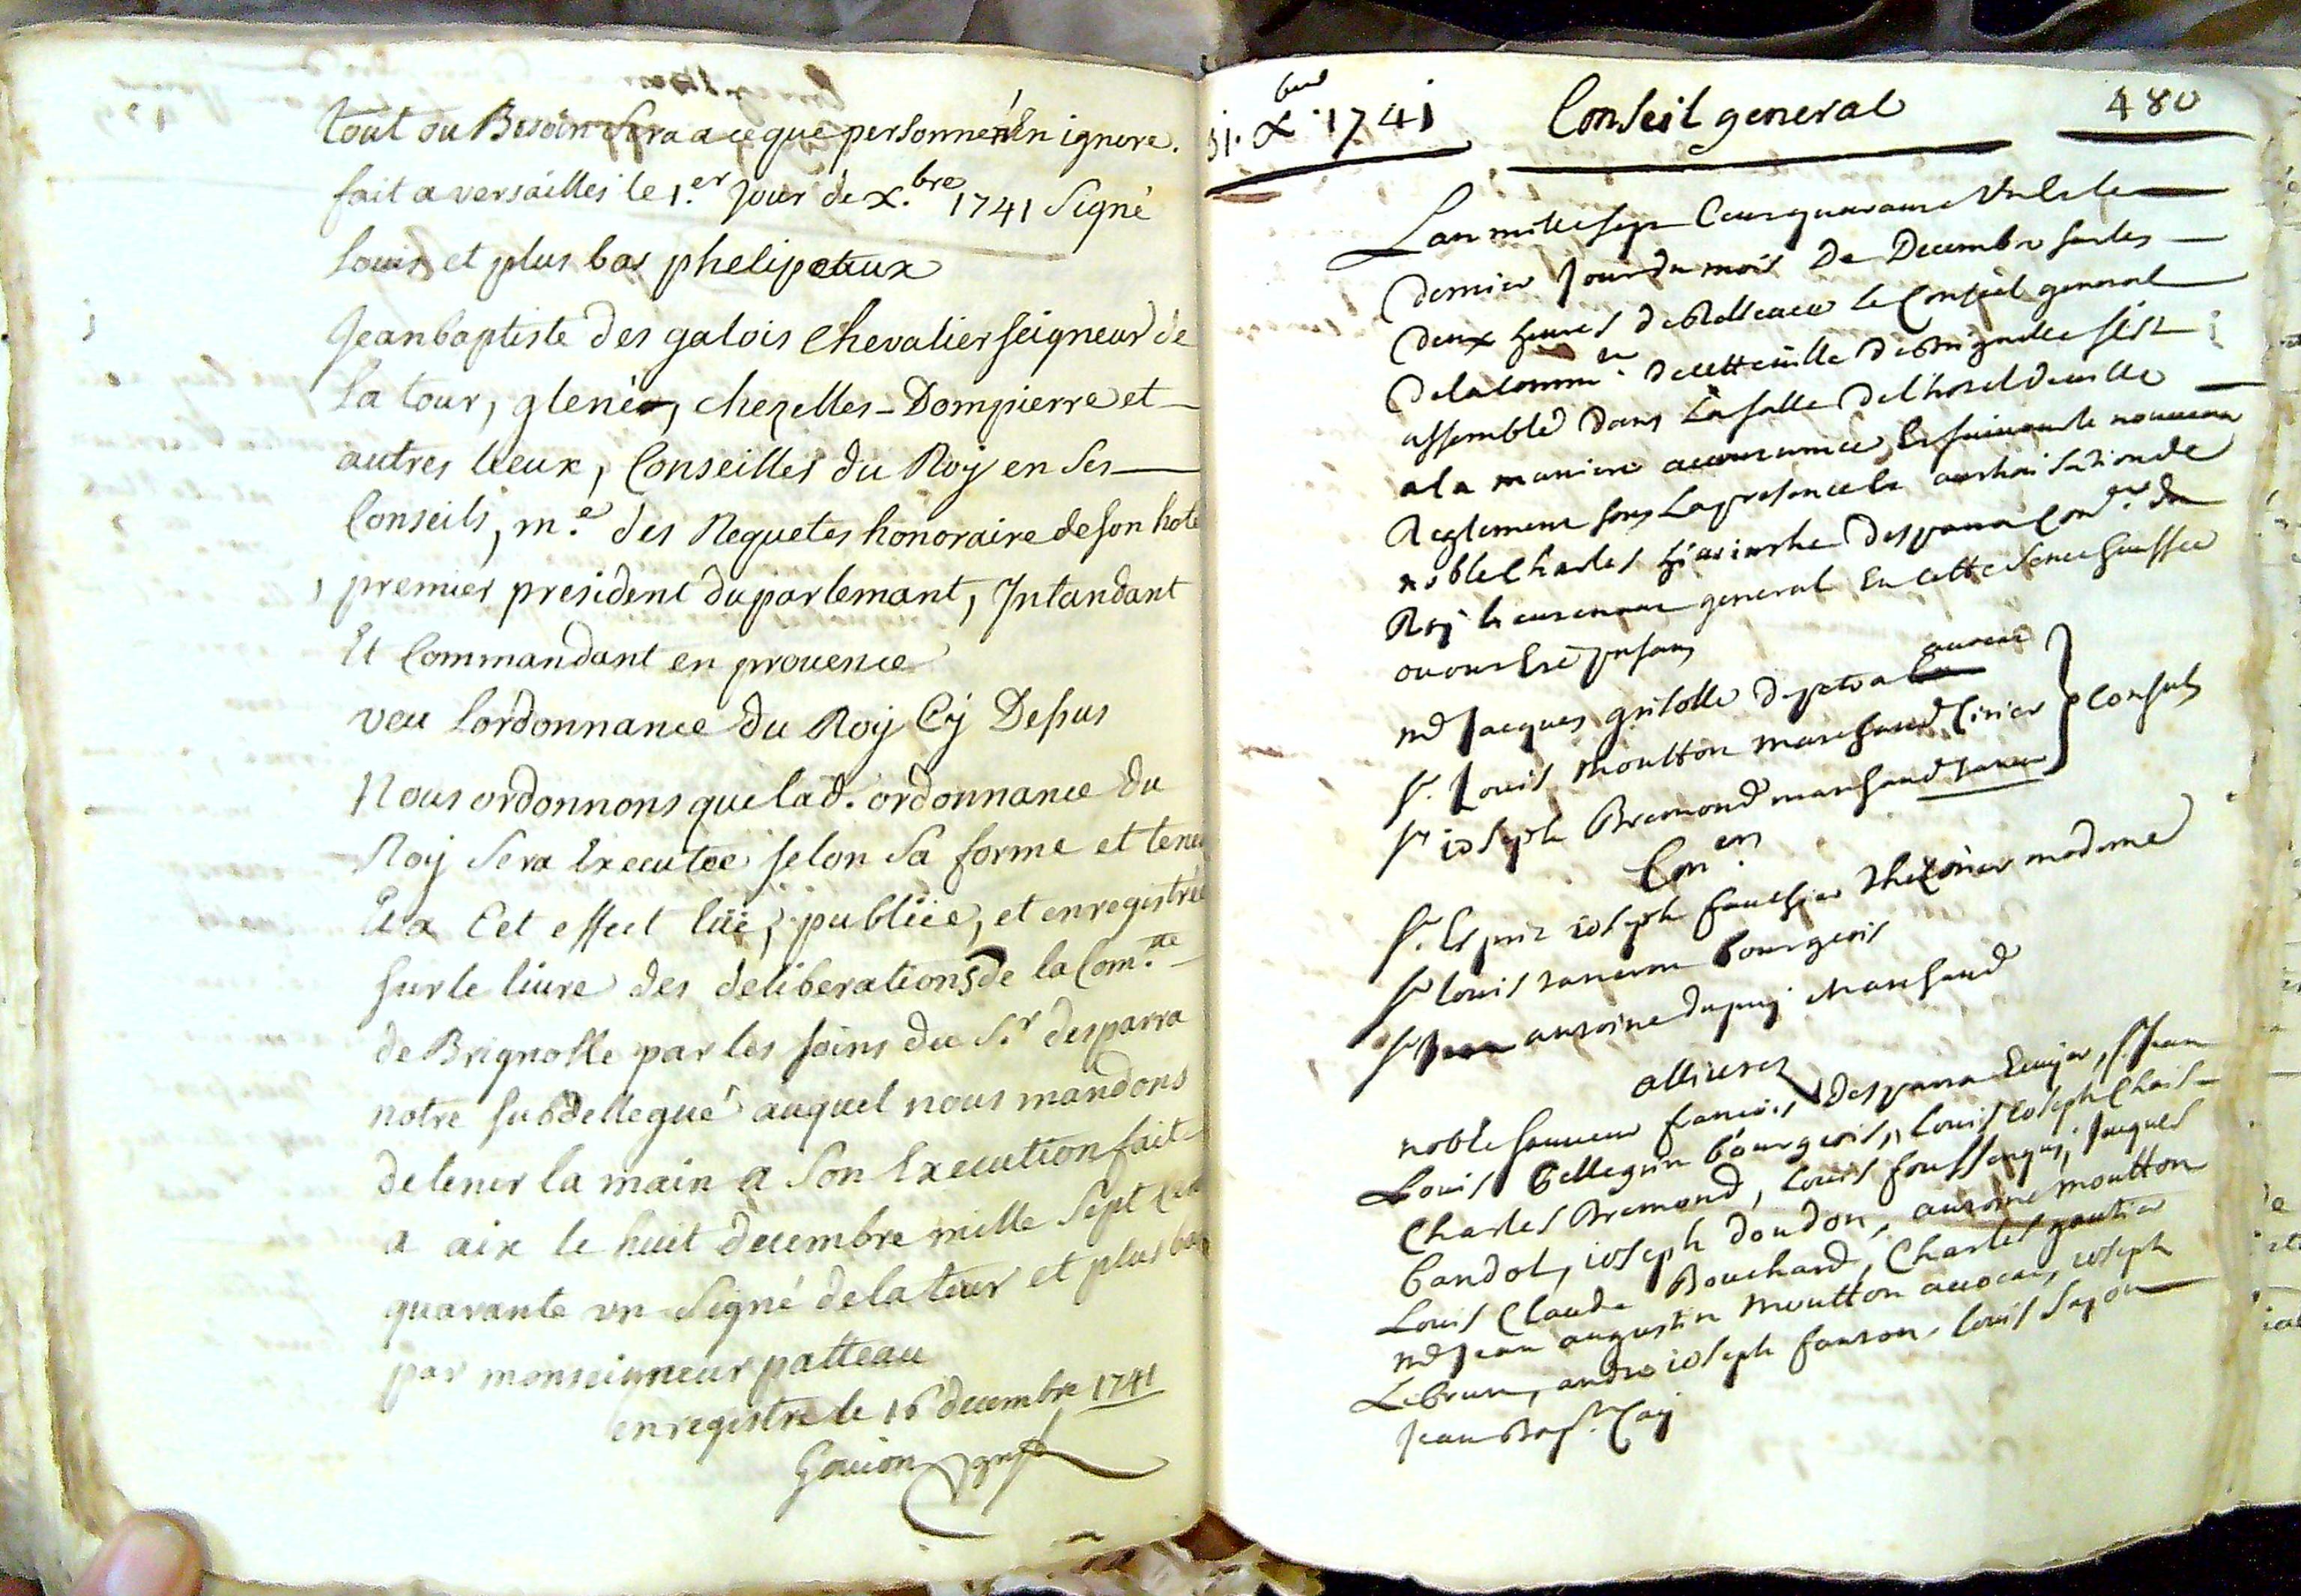 tout ou Besoin Sera a ce que personne n'En ignore.
fait a versailles le 1.er Jour de X.bre 1741 Signé
Louis et plus bas phelipeaux
Jean baptiste des galois Chevalier seigneur de
La tour, glené, chezelles - Dompierre et
autres lieux, Conseiller du Roy en Ses
Conseils, m.e des Requetes honoraire de son hotel
premier president du parlemant, Intandant
Et Commandant en prouence
veu Lordonnance du Roy Cy Dessus
Nous ordonnons que lad. ordonnance du
Roy Sera Executée selon Sa forme et teneur
Et a Cet effect lüe, publiée, et enregistrée
sur le liure des deliberations de la Com.te
de Brignolle par les soins du S.r desparra
notre subdellegué auquel nous mandons
de tenir la main a Son Execution fait
a aix le huit decembre mille Sept Cens
quarante un Signé delatour et plus bas
par monseigneur patteau
enregistre le 16 decembre 1741
Goujon greff
31. Xbre 1741 Conseil general 480
Lan mille sept Cens quarante Un & le
dernier Jour du mois De Decembre sur les
deux heures de Relleuee le Conseil general
de la Commte de cette uille de Brignolle sest
assemblé dans La salle de l'hotel de uille
a la maniere acoutumée, Et suiuant le nouueau
Reglement sous La presence & authorisation de
noble Charles hiacinthe desparra Conser du
Roy lieutenant general En cette Senechaussee
ou ont Eté presans
Md Jacques grisolle depetra auocat
Sr. Louis Moutton marchand Cirier
Sr ioseph Bremond marchand
Consuls
Con.ers
Sr. Esprit ioseph fauchier thezorier moderne
Sr louis bourgois
Sr antoine dupuy Marchand
alliurez
noble sauueur francois desparra Ecuyer, Sr Jean
Louis Bellegrin bourgois, louis ioseph Chais
Charles Bremond, louis foussenquis, Jaques
bandol, ioseph doudon, antoine moutton
Louis Claude Bouchard, Charles gautier
Md Jean augustin Moutton auocat, ioseph
Lebrun, andre ioseph fanton, louis Sapon
Jean Bapt.